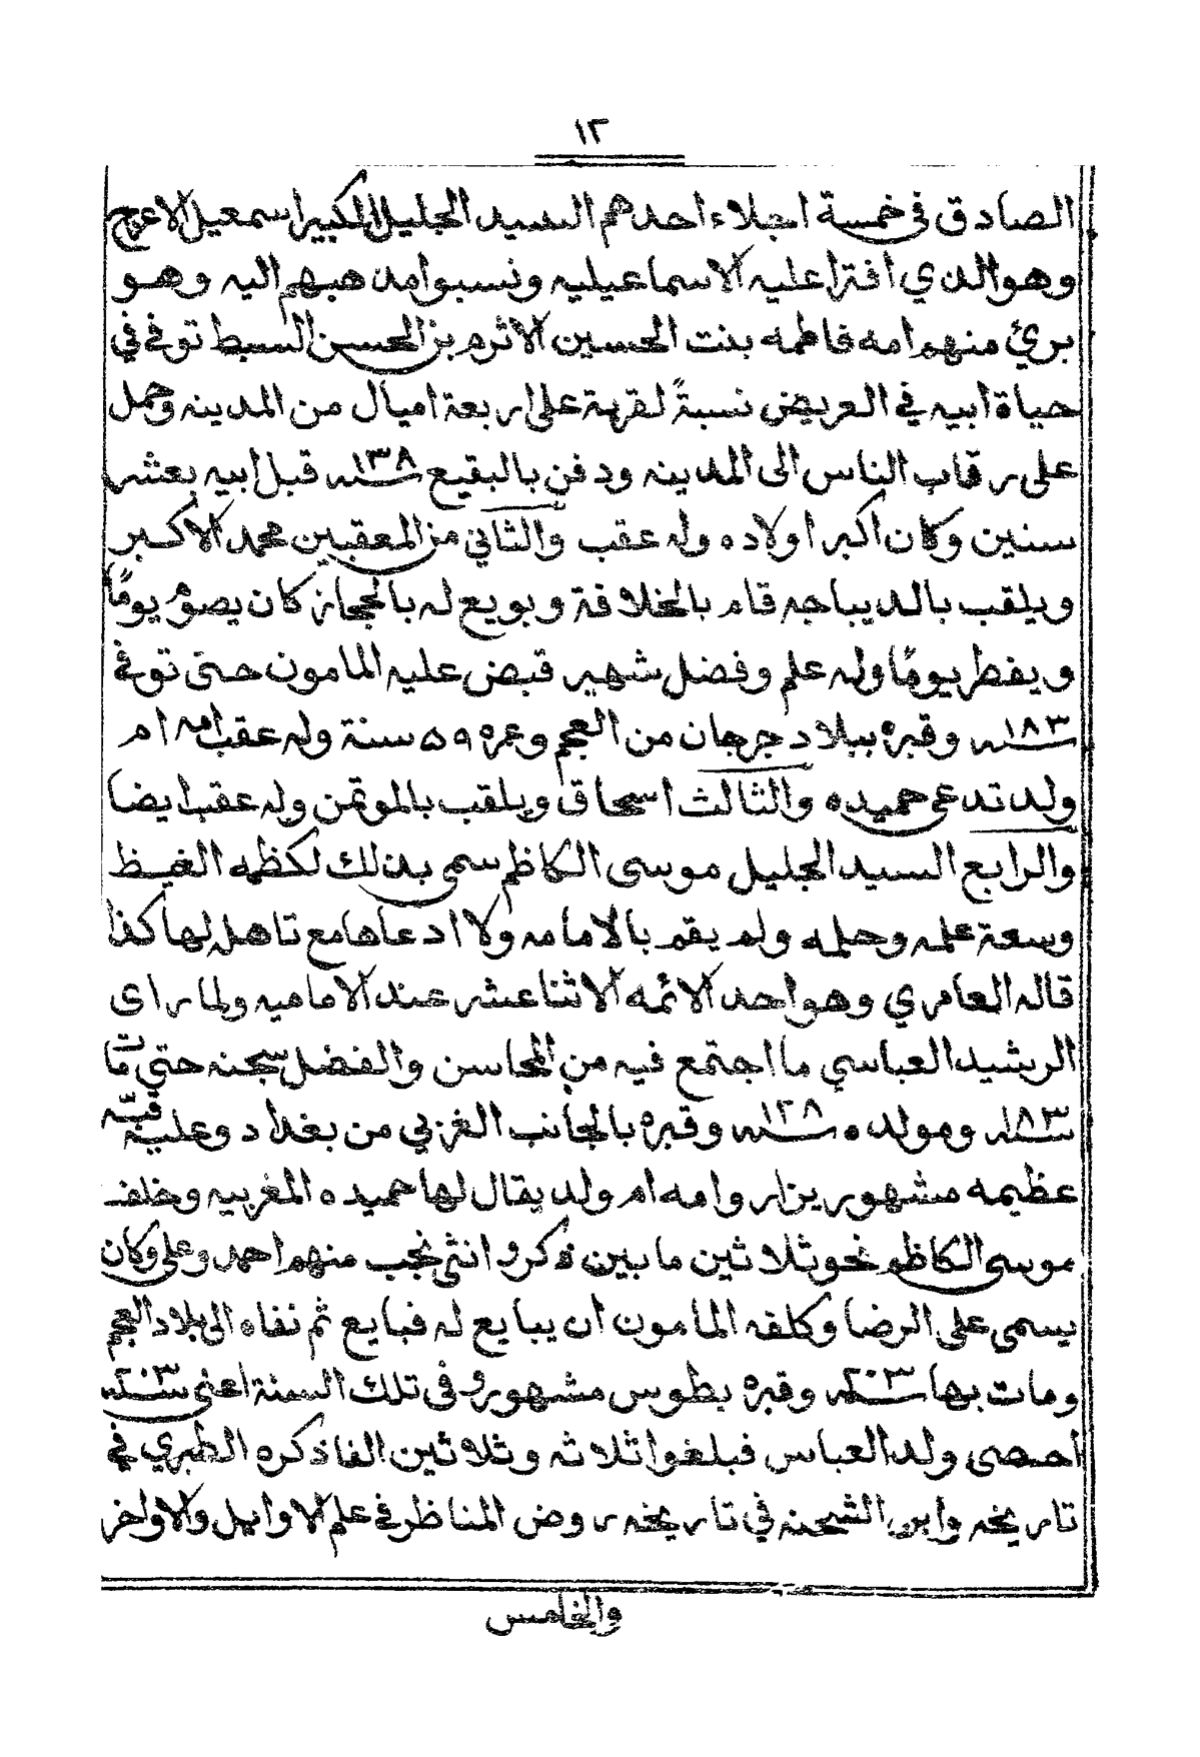 ١٣
الصادق في خمسة اجلاء احدهم السيد الجليل الكبير اسمعيل الاعرج
وهو الذي افترا عليه الاسماعيليه ونسبوا مذهبهم اليه وهو
برئ منهم امه فاطمه بنت الحسين الاثرم بن الحسن السبط توفي في
حياة ابيه في العريض نسبةً لقرية على اربعة اميال من المدينه وحمل
على رقاب الناس الى المدينه ودفن بالبقيع سنه ١٣٨ قبل ابيه بعشر
سنين وكان اكبر اولاده وله عقب والثاني من المعقبين محمد الاكبر
ويلقب بالديباجه قام بالخلافة وبويع له بالحجاز كان يصوم يومًا
ويفطر يومًا وله علم وفضل شهير قبض عليه المامون حتى توفي
سنه ١٨٣ وقبره ببلاد جرجان من العجم وعمره ٥٩ سنة وله عقب امه ام
ولد تدعى حميده والثالث اسحاق ويلقب بالموتمن وله عقب ايضا
والرابع السيد الجليل موسى الكاظم سمي بذلك لكظمه الغيظ
وسعة علمه وحلمه ولم يقم بالامامه ولا ادعاها مع تاهله لها كذا
قاله العامري وهو احد الائمه الاثنا عشر عند الاماميه ولما راى
الرشيد العباسي ما اجتمع فيه من المحاسن والفضل سجنه حتي مات
سنه ١٨٣ ومولده سنه ١٢٨ وقبره بالجانب الغربي من بغداد وعليه قبة
عظيمه مشهور يزار وامه ام ولد يقال لها حميده المغربيه وخلف
موسى الكاظم نحو ثلاثين ما بين ذكر وانثى نجب منهم احمد وعلي وكان
يسمى علي الرضا وكلفه المامون ان يبايع له فبايع ثم نفاه الى بلاد العجم
ومات بها سنه ٢٠٣ وقبره بطوس مشهور وفي تلك السنة اعني سنه ٢٠٣
احصى ولد العباس فبلغوا ثلاثه وثلاثين الفا ذكره الطبري في
تاريخه وابن الشحنه في تاريخه روض المناظر في علم الاوايل والاواخر
والخامس